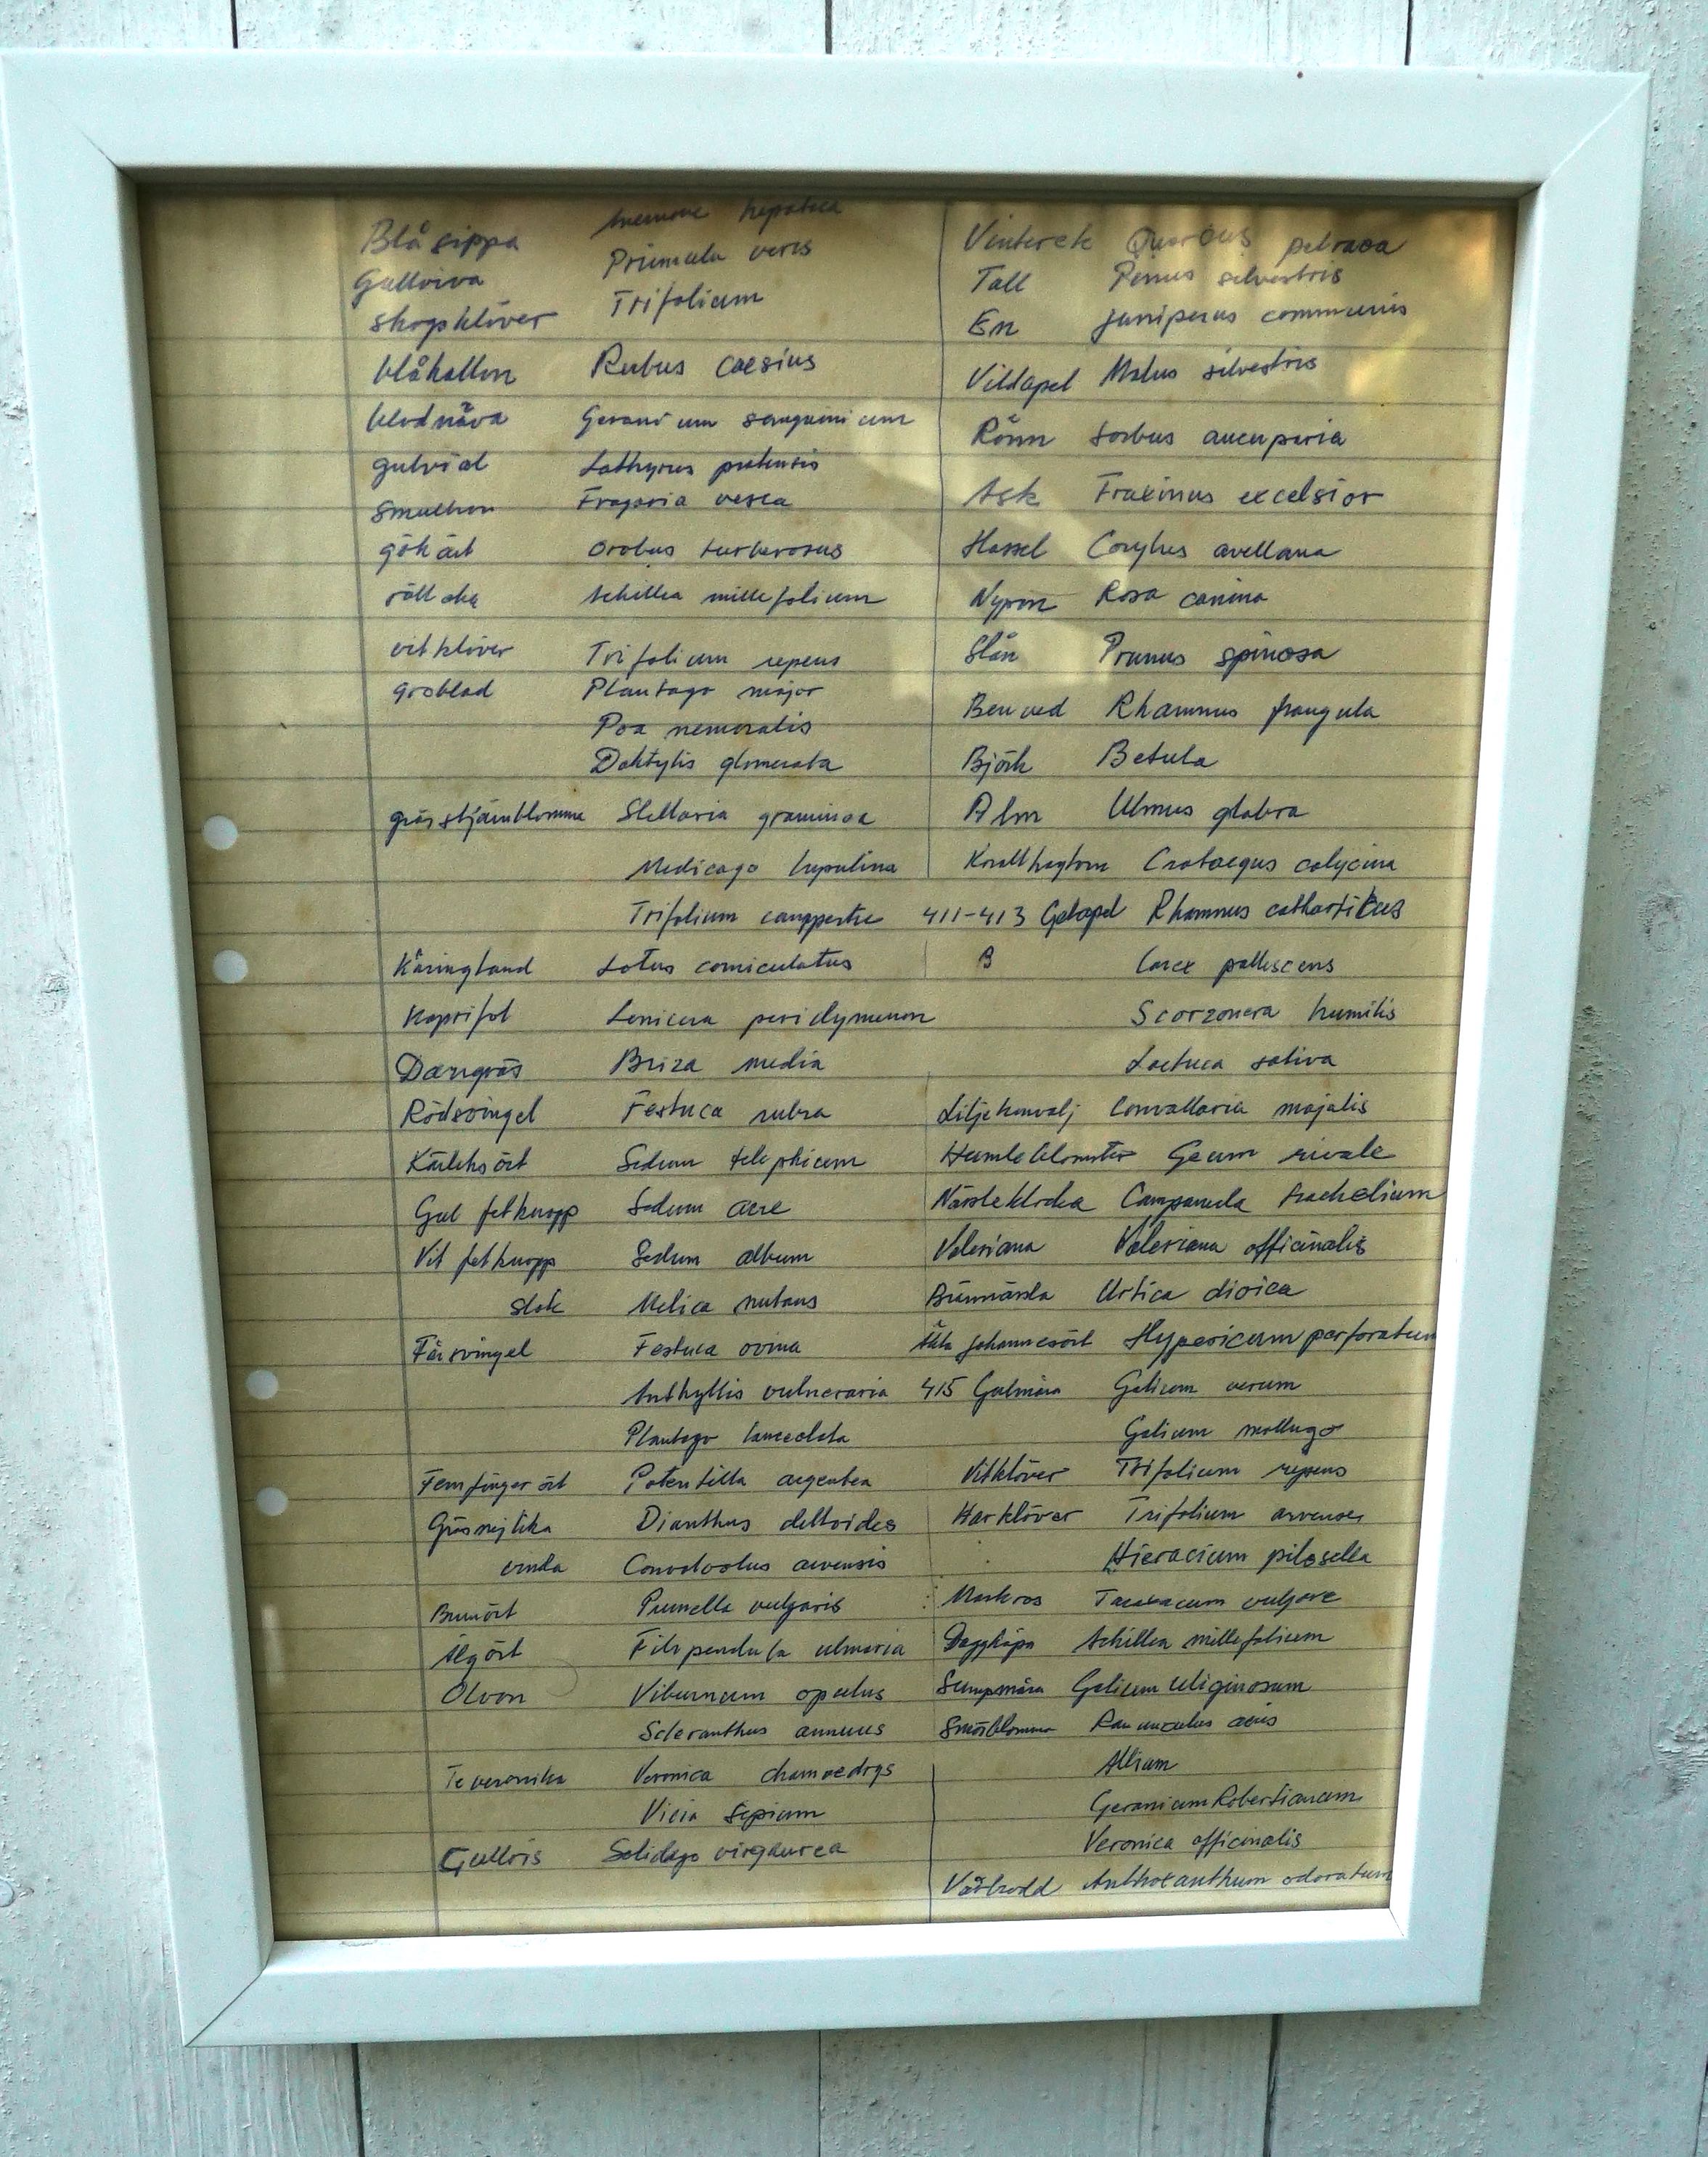 Blåsippa Anemone hepatica
Gullviva Primula veris
skogsklöver Trifolium
blåhallon Rubus caesius
blodnäva Geranium sanguinicum
gulvial Lathyrus pratensis
smultron Fragaria vesca
gökärt Orobus tuberosus
rölleka Achillea millefolium
vitklöver Trifolium repens
groblad Plantago major
Poa nemoralis
Daktylis glomerata
grässtjärnblomma Stellaria graminea
Medicago lupulina
Trifolium camppestre
Käringtand Lotus corniculatus
Kaprifol Lonicera periclymenon
Darrgräs Briza media
Rödsvingel Festuca rubra
Kärleksört Sedum telephium
Gul fetknopp Sedum acre
Vit fetknopp Sedum album
slok Melica nutans
Fårsvingel Festuca ovina
Anthyllis vulneraria
Plantago lanceolata
Femfingerört Potentilla argentea
Gräsnejlika Dianthus deltoides
vinda Convolvolus arvensis
Brunört Prunella vulgaris
Älgört Filipendula ulmaria
Olvon Viburnum opulus
Scleranthus annuus
Teveronika Veronica chamaedrys
Vicia sepium
Gullris Solidago virgaurea
Vinterek Quercus petraea
Tall Pinus silvestris
En juniperus communis
Vildapel Malus silvestris
Rönn Sorbus aucuparia
Ask Fraxinus excelsior
Hassel Corylus avellana
Nypon Rosa canina
Slån Prunus spinosa
Benved Rhamnus frangula
Björk Betula
Alm Ulmus glabra
Korallhagtorn Crataegus calycina
411-413 Getapel Rhamnus catharticus
B Carex pallescens
Scorzonera humilis
Lactuca sativa
Liljekonvalj Convallaria majalis
Humleblomster Geum rivale
Nässleklocka Campanula trachelium
Valeriana Valeriana officinalis
Brännässla Urtica dioica
Äkta johannesört Hypericum perforatum
415 Gulmåra Galium verum
Galium mollugo
Vitklöver Trifolium repens
Harklöver Trifolium arvense
Hieracium pilosella
Maskros Taraxacum vulgare
Daggkåpa Achillea millefolium
Sumpmåra Galium uliginosum
Smörblomma Ranunculus acris
Allium
Geranium Robertianum
Veronica officinalis
Vårbrodd Anthoxanthum odoratum